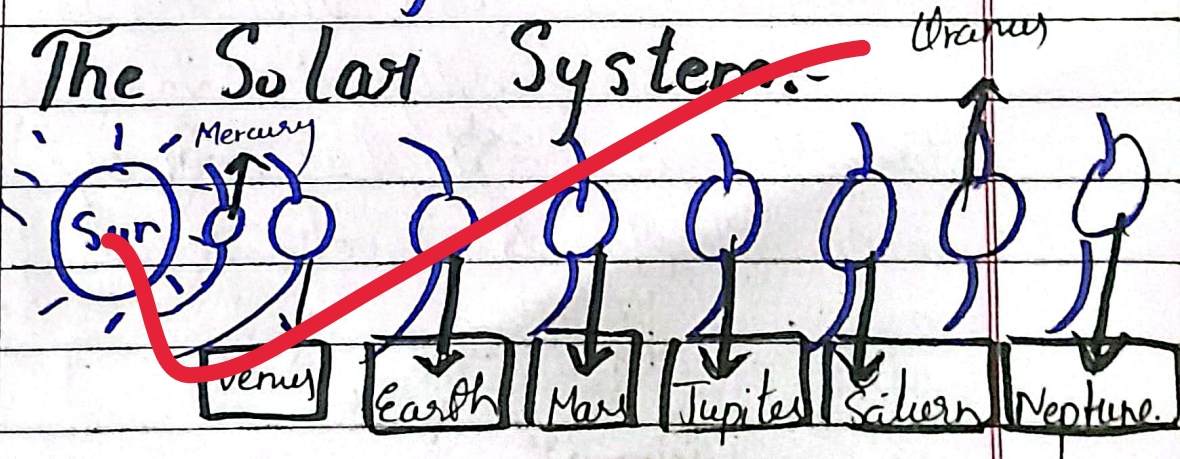 The Solar System:-
Uranus
Mercury
Sun
Venus
Earth
Mars
Jupiter
Saturn
Neptune.